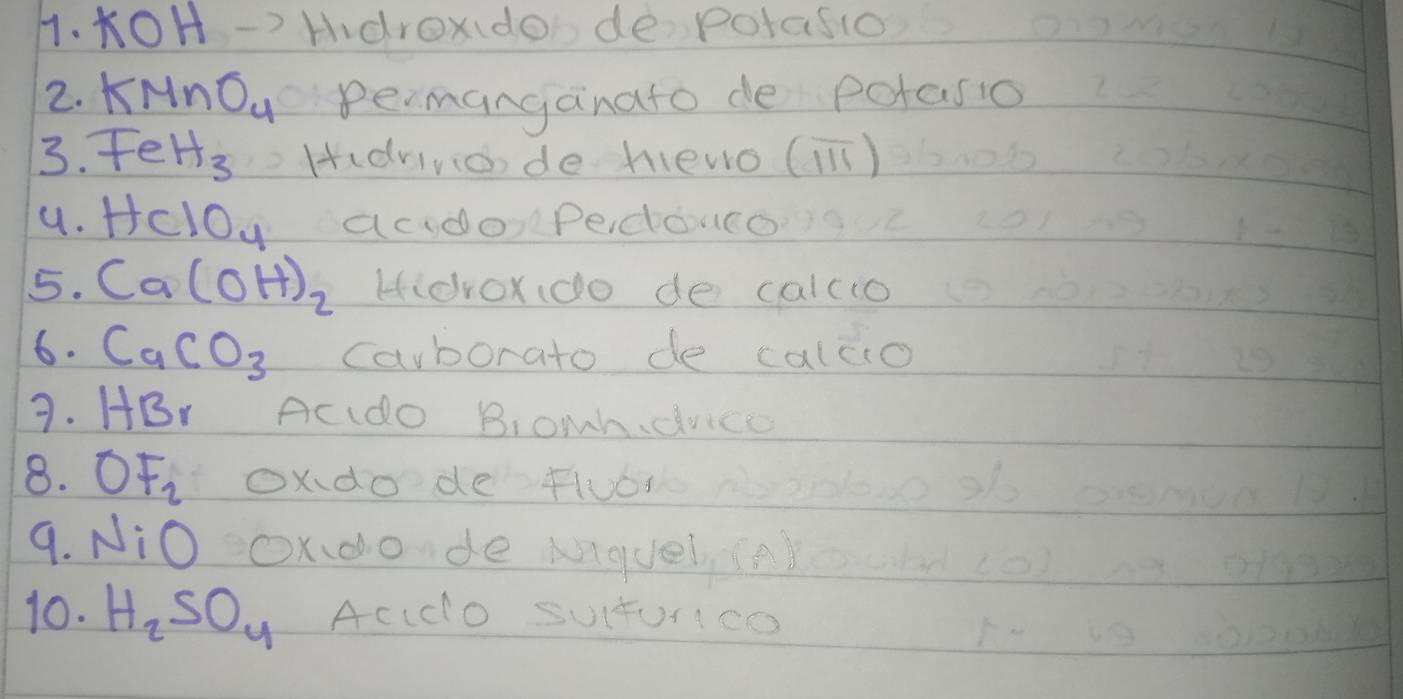 1. KOH -> Hidroxido de potasio
2. KMnO4 permanganato de potasio
3. FeH3 Hidruro de hierro (III)
4. HClO4 acido Perclorico
5. Ca(OH)2 Hidroxido de calcio
6. CaCO3 carbonato de calcio
7. HBr Acido Bromhidrico
8. OF2 oxido de Fluor
9. NiO oxido de Niquel (II)
10. H2SO4 Acido sulfurico